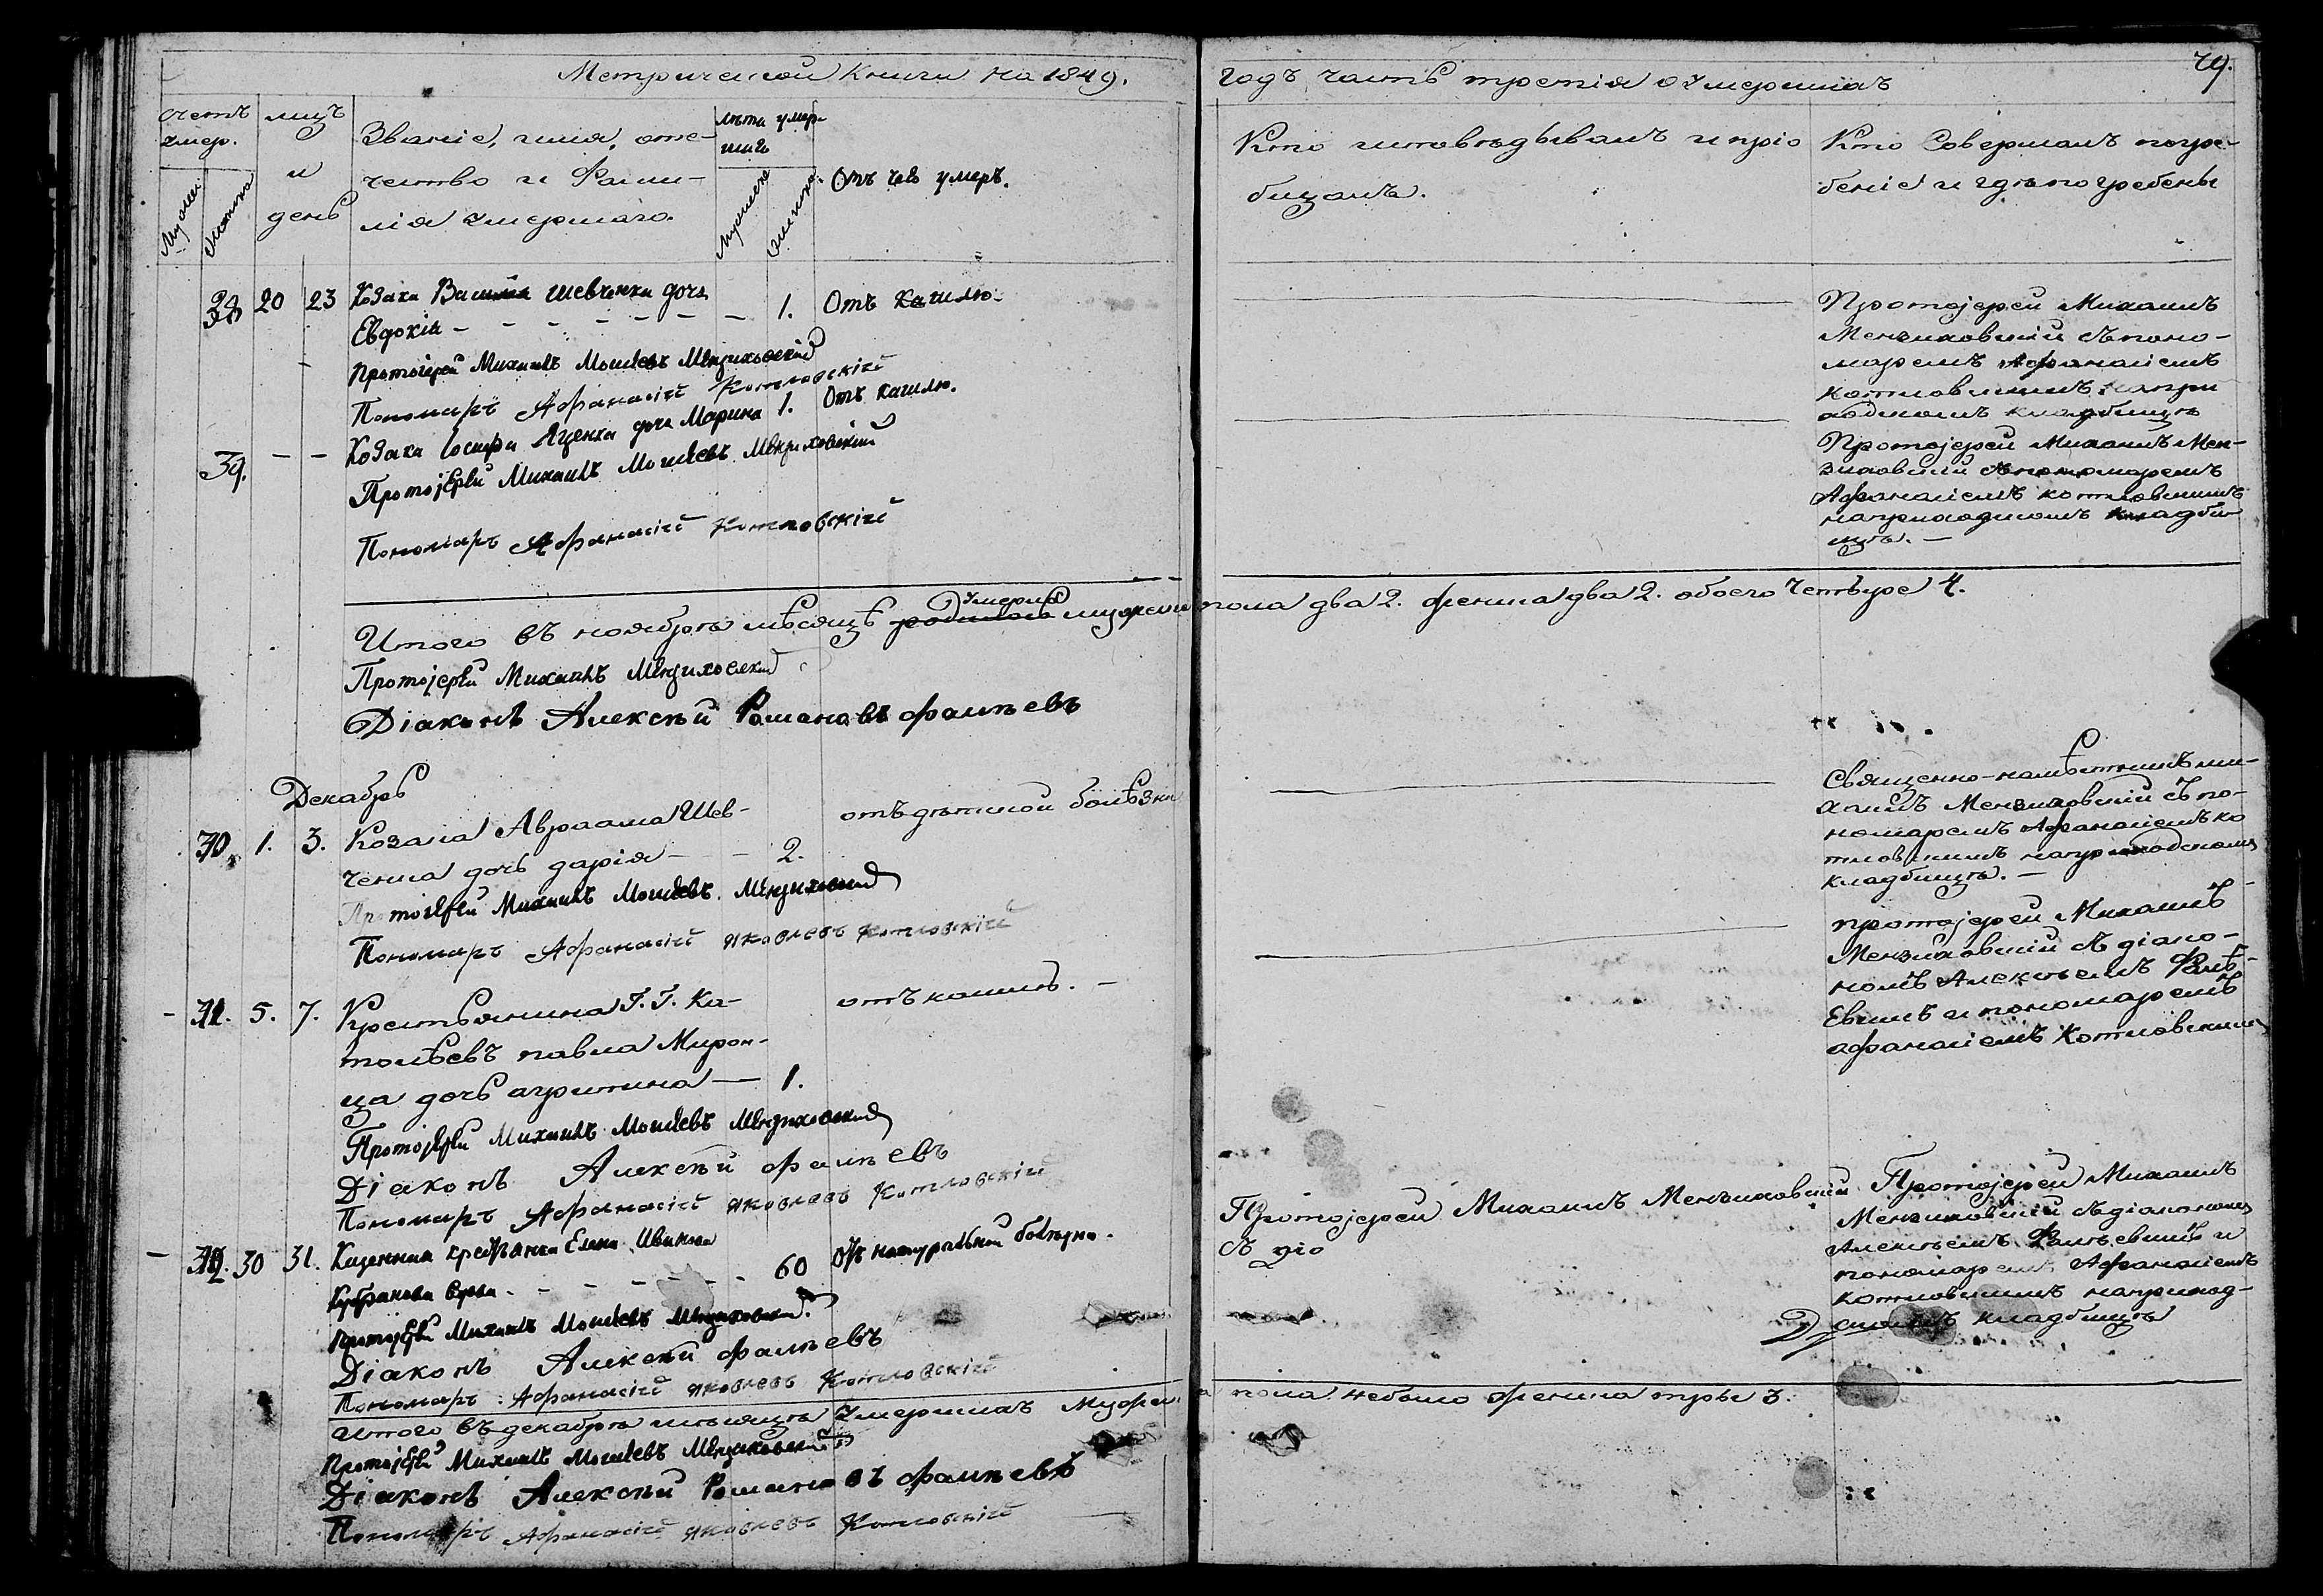 Метрической Книги на 1849.
годъ часть третія о умершихъ
79.
счетъ умер.
мцъ и день
Званіе, имя, оте-
чество и Фами-
лія умершаго.
лѣта умер-
шихъ
Отъ чего умеръ.
Кто исповѣдывалъ и пріо
бщалъ.
Кто Совершалъ погре-
беніе и гдѣ погребены
20 23 Козака Василія Шевченка дочь
Евдокія - - - - - - - 1. Отъ кашлю.
Протоіерей Михаилъ Моисѣевъ Мензиховскій
Пономарь Афанасій Котловскій
Протоіерей Михаилъ
Мензиховскій съ поно-
маремъ Афанасіемъ
Котловскимъ на при
ходскомъ кладбищѣ
39. - - Козака Іосифа Яценка дочь Марина 1. Отъ кашлю.
Протоіерей Михаилъ Моисѣевъ Мензиховскій
Пономарь Афанасій Котловскій
Протоіерей Михаилъ Мен-
зиховскій съ пономаремъ
Афанасіемъ Котловскимъ
на приходскомъ кладби-
щѣ. —
Итого въ ноябрѣ мѣсяцѣ умерло мужеска пола два 2. женска два 2. обоего четыре 4.
Протоіерей Михаилъ Мензиховскій
Діаконъ Алексѣй Романовъ Фалѣевъ
Декабрь
1. 3. Козака Авраама Шев-
ченка дочь Дарія — - 2. отъ дѣтской болѣзни
Протоіерей Михаилъ Моисѣевъ Мензиховскій
Пономарь Афанасій Яковлевъ Котловскій
Священно-намѣстникъ Ми-
хаилъ Мензиховскій съ по-
номаремъ Афанасіемъ Ко
тловскимъ на приходскомъ
кладбищѣ. —
5. 7. Крестьянина Г. Г. Ка-
павла Мирон-
ца дочь агрипина — 1. отъ кашлю. -
Протоіерей Михаилъ Моисѣевъ Мензиховскій
Діаконъ Алексѣй Фалѣевъ
Пономарь Афанасій Яковлевъ Котловскій
протоіерей Михаилъ
Мензиховскій съ діако-
номъ Алексѣемъ Фалѣ-
Евымъ и пономаремъ
афанасіемъ Котловскимъ
30 31. Казенная крестьянка Елена Иванова
60 Отъ натуральной болѣзни.
Протоіерей Михаилъ Моисѣевъ Мензиховскій
Діаконъ Алексѣй Фалѣевъ
Пономарь Афанасій Яковлевъ Котловскій
Протоіерей Михаилъ Мензиховскій
съ діо
Протоіерей Михаилъ
Мензиховскій съ діакономъ
Алексѣемъ Фалѣевымъ и
пономаремъ Афанасіемъ
Котловскимъ на приход-
скомъ кладбищѣ
Итого въ декабрѣ мѣсяцѣ умершихъ мужеска пола небыло женска три 3.
Протоіерей Михаилъ Моисѣевъ Мензиховскій
Діаконъ Алексѣй Романовъ Фалѣевъ
Пономарь Афанасій Яковлевъ Котловскій